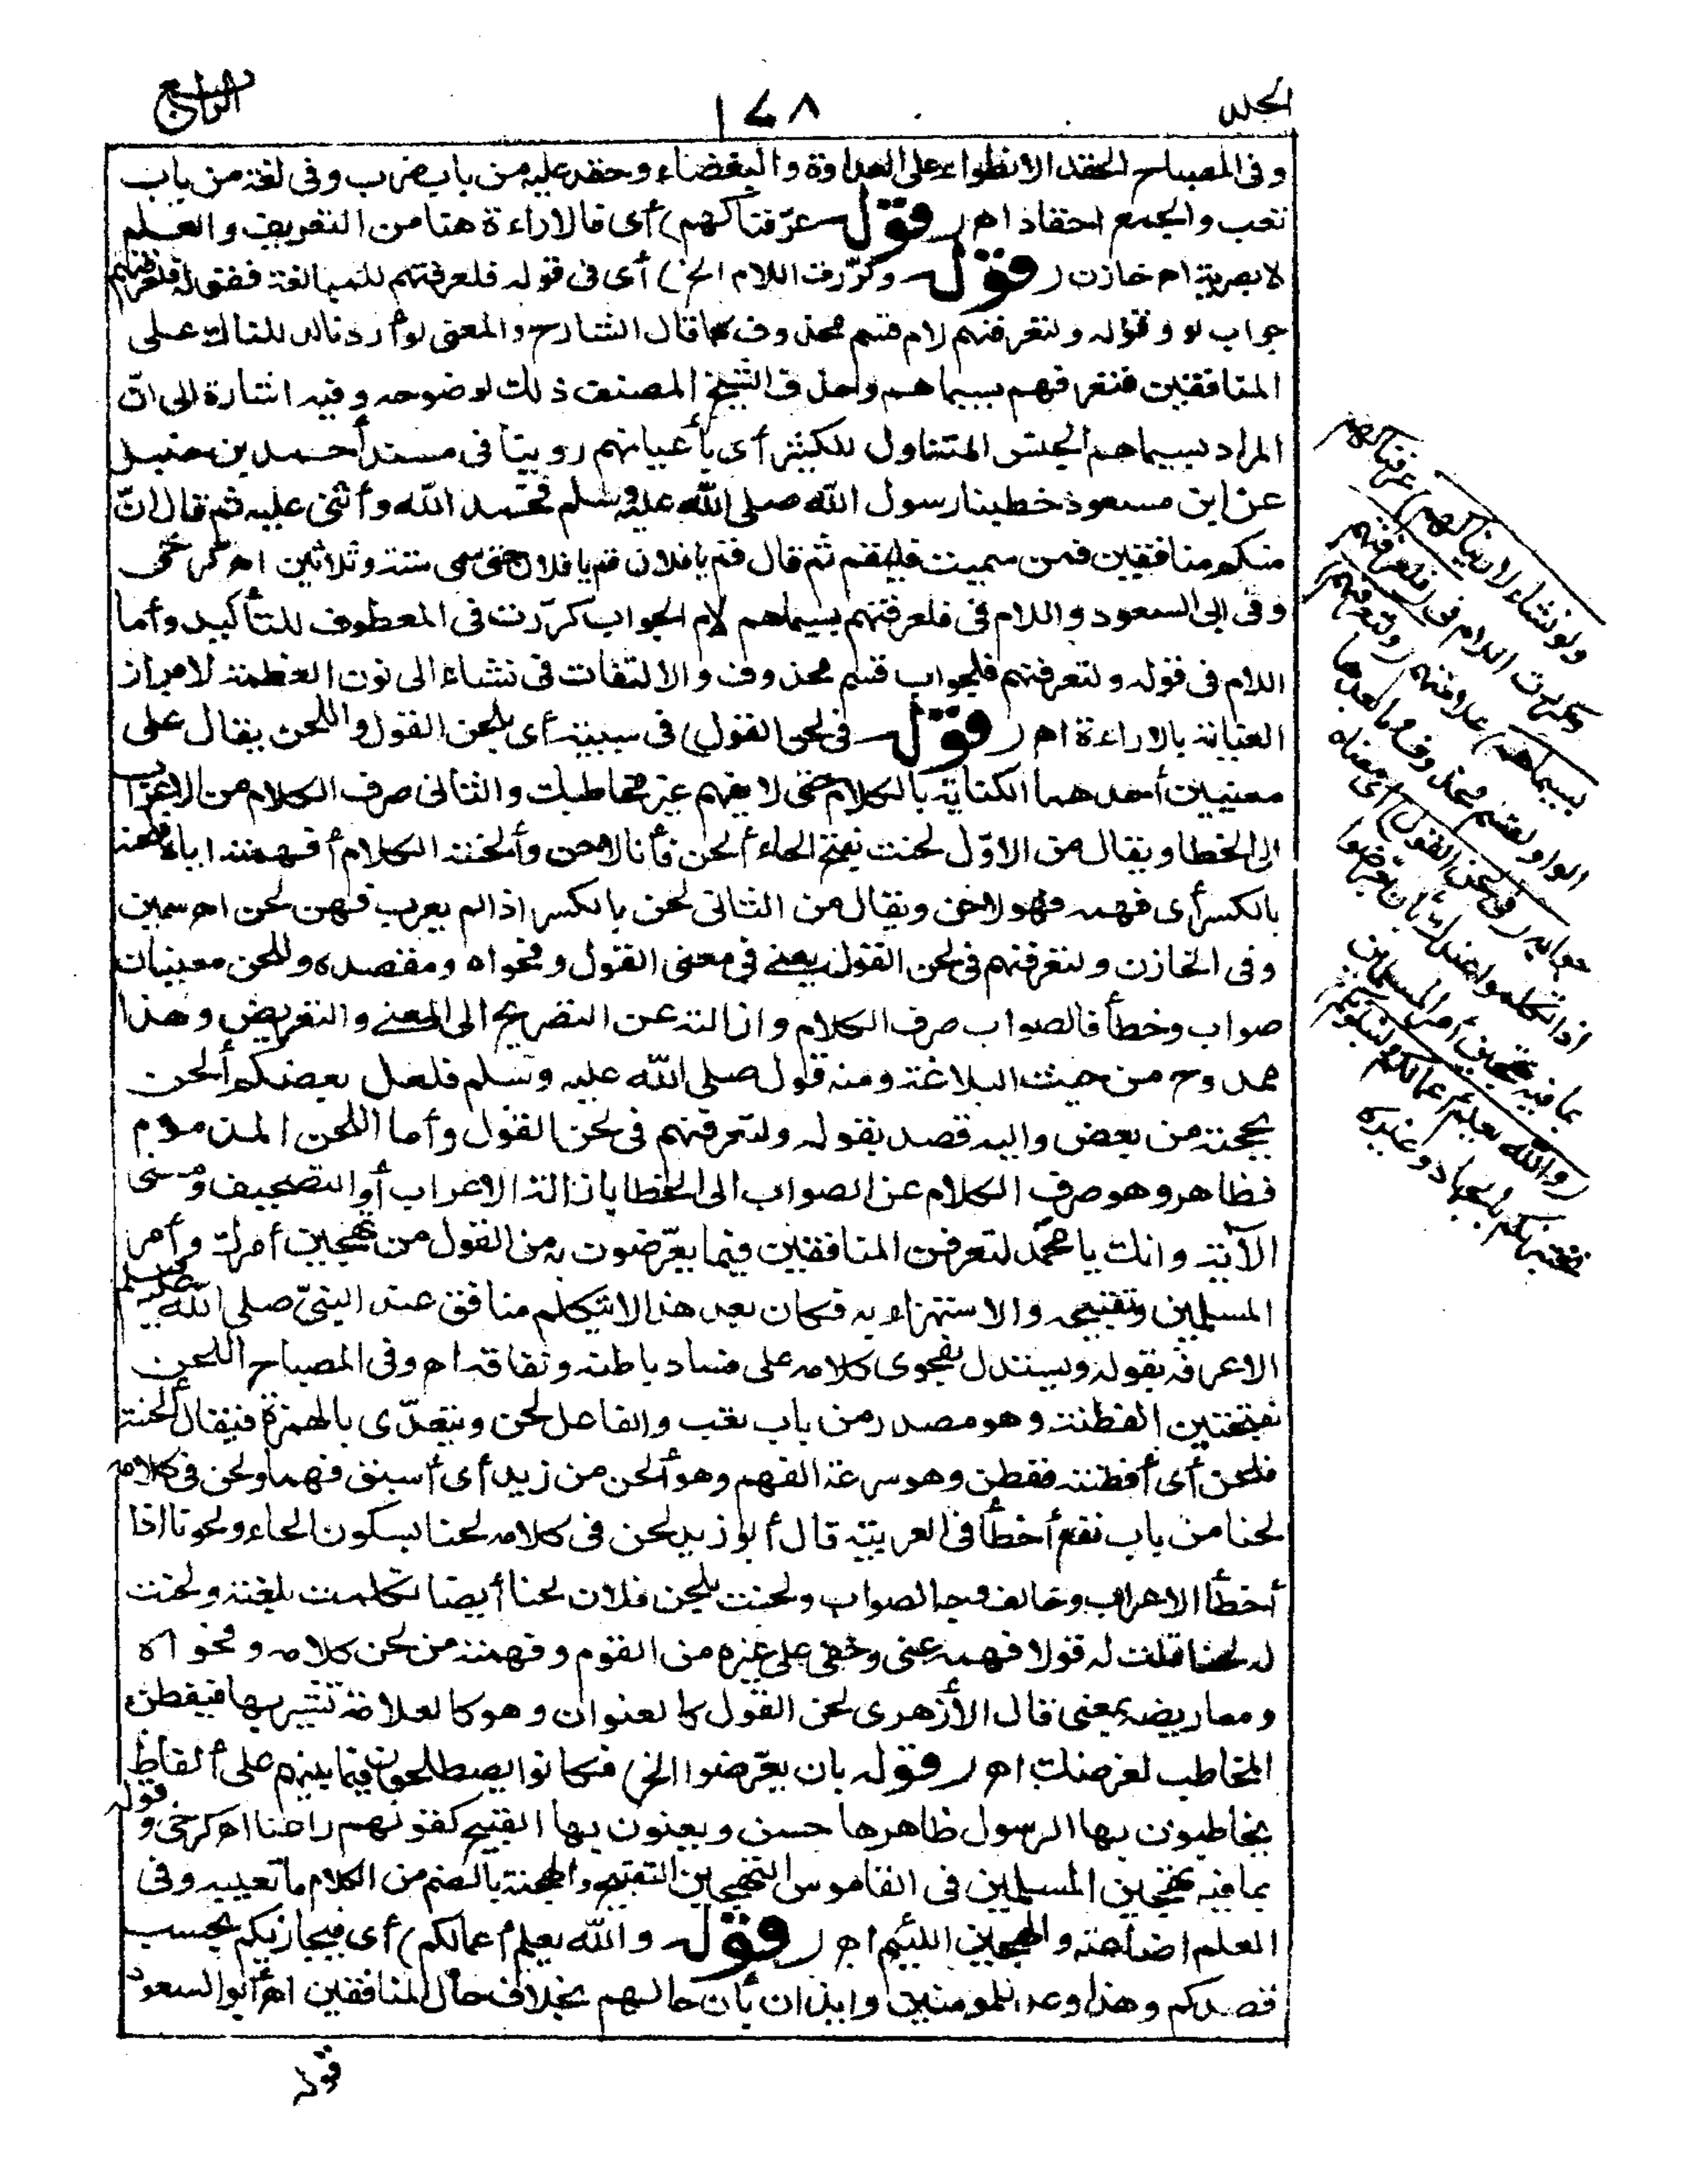 الجلد
١٤٨
الرابع
وفى المصباح الحقد الانطواء على العداوة والبغضاء وحقد عليه من باب ضرب وفى لغة من باب
تعب والجمع أحقاد اه (قوله عرّفناكهم) أى فالاراءة هنا من التعريف والعلم
لا بصرية اه خازن (قوله وكرّرت اللام الخ) أى فى قوله فلعرفتهم للمبالغة فقوله فلعرفتهم
جواب لو وقوله ولتعرفنهم لام قسم محذوف كما قال الشارح والمعنى لو أردنا لدللناك على
المنافقين فتعرفهم بسيماهم وحذف الشيخ المصنف ذلك لوضوحه وفيه اشارة الى انّ
المراد بسيماهم الجنس المتناول للكثير أى بأعيانهم روينا فى مسند أحمد بن حنبل
عن ابن مسعود خطبنا رسول الله صلى الله عليه وسلم فحمد الله وأثنى عليه ثم قال انّ
منكم منافقين فمن سميت فليقم ثم قال قم يا فلان قم يا فلان حتى سمى ستة وثلاثين اه كرخى
وفى ابى السعود واللام فى فلعرفتهم بسيماهم لام الجواب كرّرت فى المعطوف للتأكيد وأما
اللام فى قوله ولتعرفنهم فلجواب قسم محذوف والالتفات فى نشاء الى نون العظمة لابراز
العناية بالاراءة اه (قوله فى لحن القول) فى سببية أى بلحن القول واللحن يقال على
معنيين أحدهما الكناية بالكلام حتى لا يفهم غير مخاطبك والثانى صرف الكلام من الاعراب
الى الخطا ويقال من الاوّل لحنت بفتح الحاء ألحن فأنا لاحن وألحنته الكلام أفهمته اياه فلحنه
بالكسر أى فهمه فهو لاحن ويقال من الثانى لحن بالكسر اذا لم يعرب فهن لحن اه سمين
وفى الخازن ولتعرفنهم فى لحن القول يعنى فى معنى القول وفحواه ومقصده وللحن معنيان
صواب وخطأ فالصواب صرف الكلام وازالته عن التصريح الى المعنى والتعريض وهذا
ممدوح من حيث البلاغة ومنه قول صلى الله عليه وسلم فلعل بعضكم ألحن
بحجته من بعض واليه قصد بقوله ولتعرفنهم فى لحن القول وأما اللحن المذموم
فظاهر وهو صرف الكلام عن الصواب الى الخطا بازالة الاعراب أو التصحيف ومعنى
الآية وانك يا محمّد لتعرفن المنافقين فيما يعرّضون به من القول من تهجين أمرك وأمر
المسلمين وتقبيحه والاستهزاء به فكان بعد هذا لا يتكلم منافق عند النبىّ صلى الله عليه وسلم
الا عرفه بقوله ويستدل بفحوى كلامه على فساد باطنه ونفاقه اه وفى المصباح اللحن
بفتحتين الفطنة وهو مصدر من باب تعب والفاعل لحن ويتعدّى بالهمزة فيقال ألحنته
فلحن أى أفطنته ففطن وهو سرعة الفهم وهو ألحن من زيد أى أسبق فهما ولحن فى كلامه
لحنا من باب نفع أخطأ فى العربية قال أبو زيد لحن فى كلامه لحنا بسكون الحاء ولحونا اذا
أخطأ الاعراب وخالف وجه الصواب ولحنت بلحن فلان لحنا أيضا تكلمت بلغته ولحنت
له لحنا قلت له قولا فهمه عنى وخفى على غيره من القوم وفهمته من لحن كلامه وفحواه
ومعاريضه بمعنى قال الأزهرى لحن القول كالعنوان وهو كالعلامة تشير بها فيفطن
المخاطب لغرضك اه (قوله بان يعرّضوا الخ) فكانوا يصطلحون فيما بينهم على ألفاظ
يخاطبون بها الرسول ظاهرها حسن ويعنون بها القبيح كقولهم راعنا اه كرخى وقوله
بما فيه تهجين المسلمين فى القاموس التهجين التقبيح والهجنة بالضم من الكلام ما تعيبه وفى
العلم اضاعته والهجين اللئيم اه (قوله والله يعلم أعمالكم) أى فيجازيكم بحسب
قصدكم وهذا وعد للمؤمنين وايذان بأن حالهم بخلاف حال المنافقين اه أبو السعود
قوله
ولو نشاء لاريناكهم) عرفناكهم
وكررت اللام فى (فلعرفتهم
بسيماهم) علامتهم (ولتعرفنهم)
الواو لقسم محذوف وما بعدها
جوابه (فى لحن القول) أى معناه
اذا تكلموا عندك بأن يعرّضوا
بما فيه تهجين أمر المسلمين
(والله يعلم أعمالكم ولنبلونكم)
نختبرنكم بالجهاد وغيره